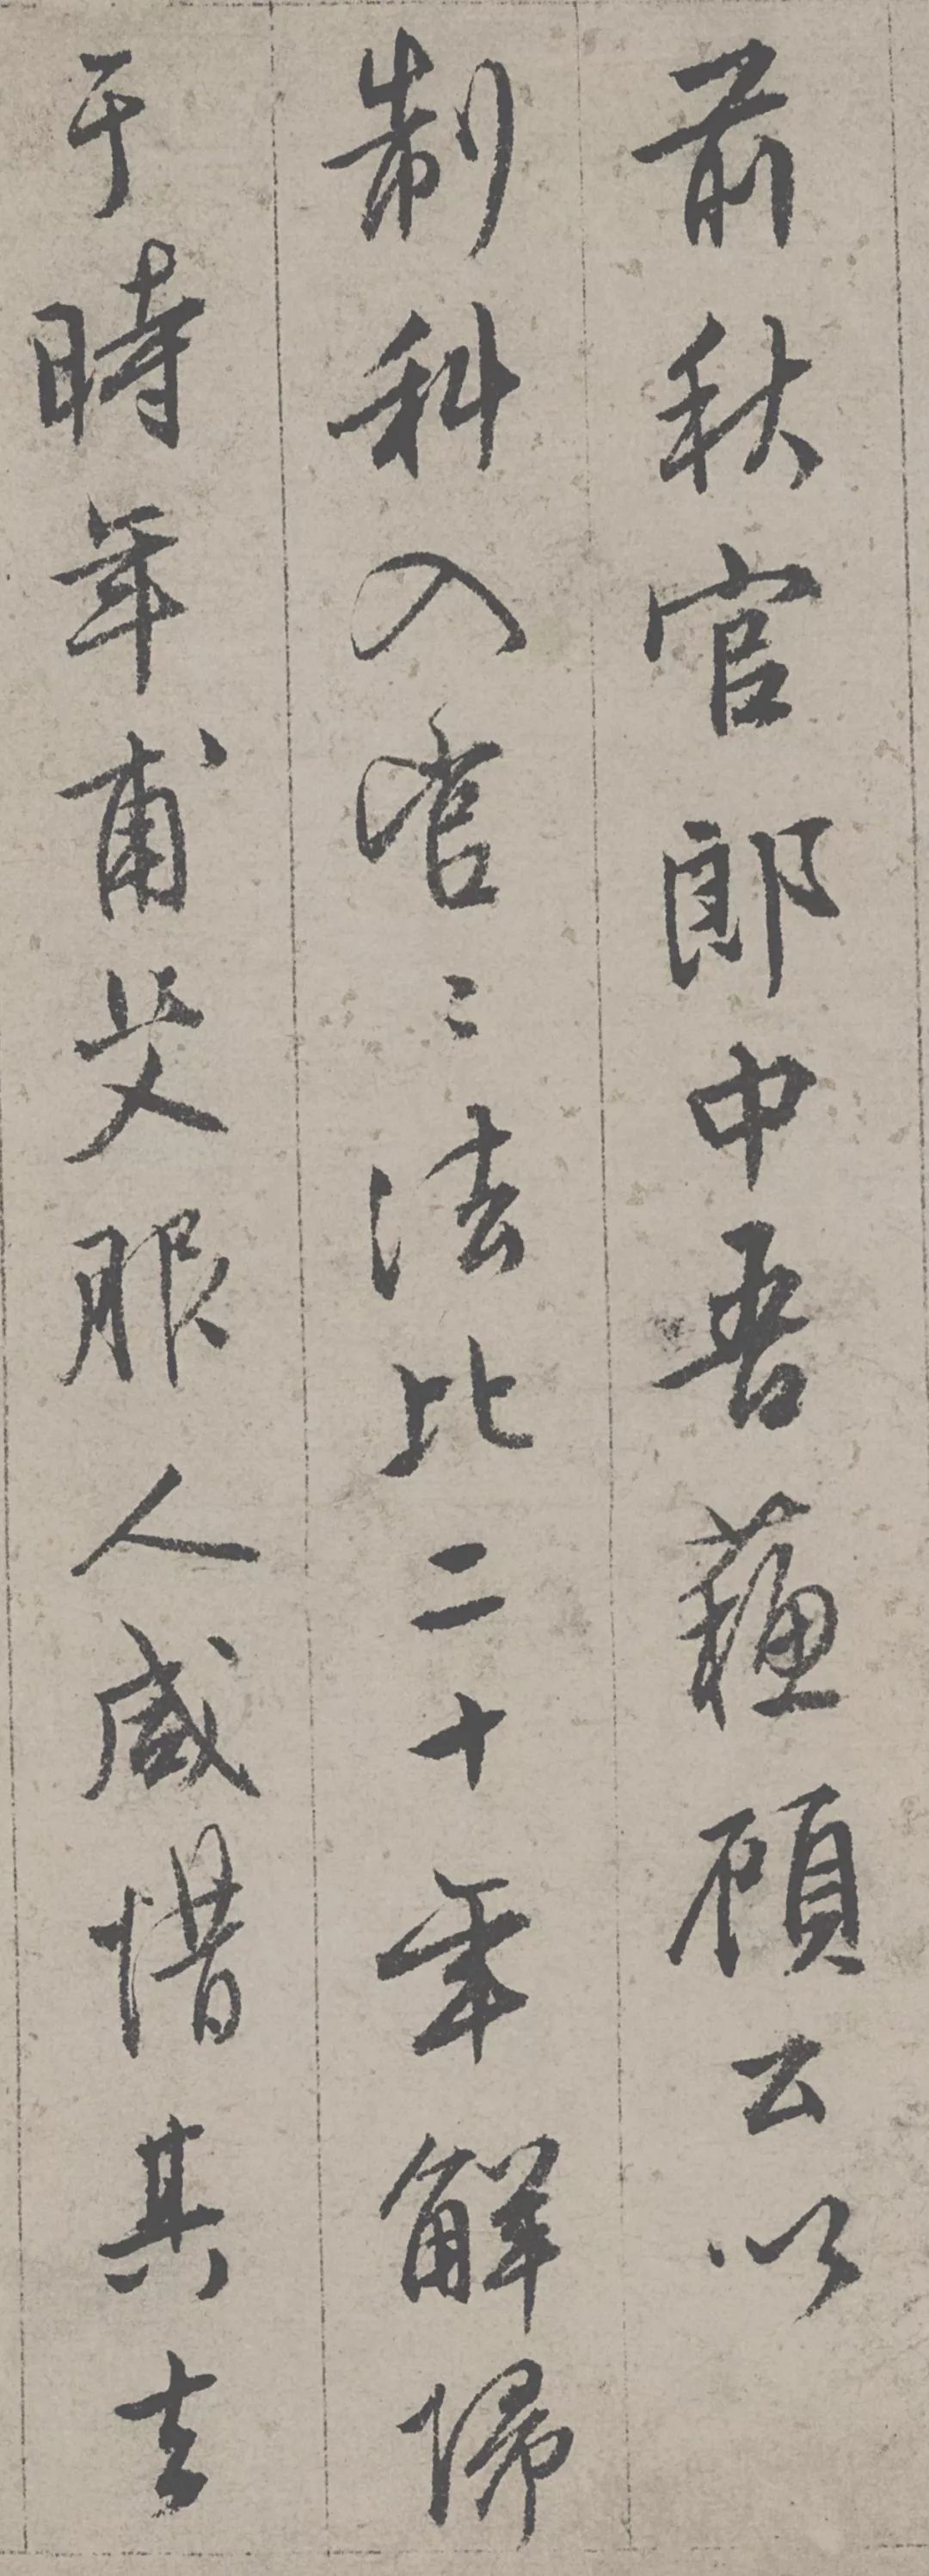 前秋官郎中吾蘓顧公以
制科入官〻法比二十年解歸
于時年甫艾服人咸惜其去